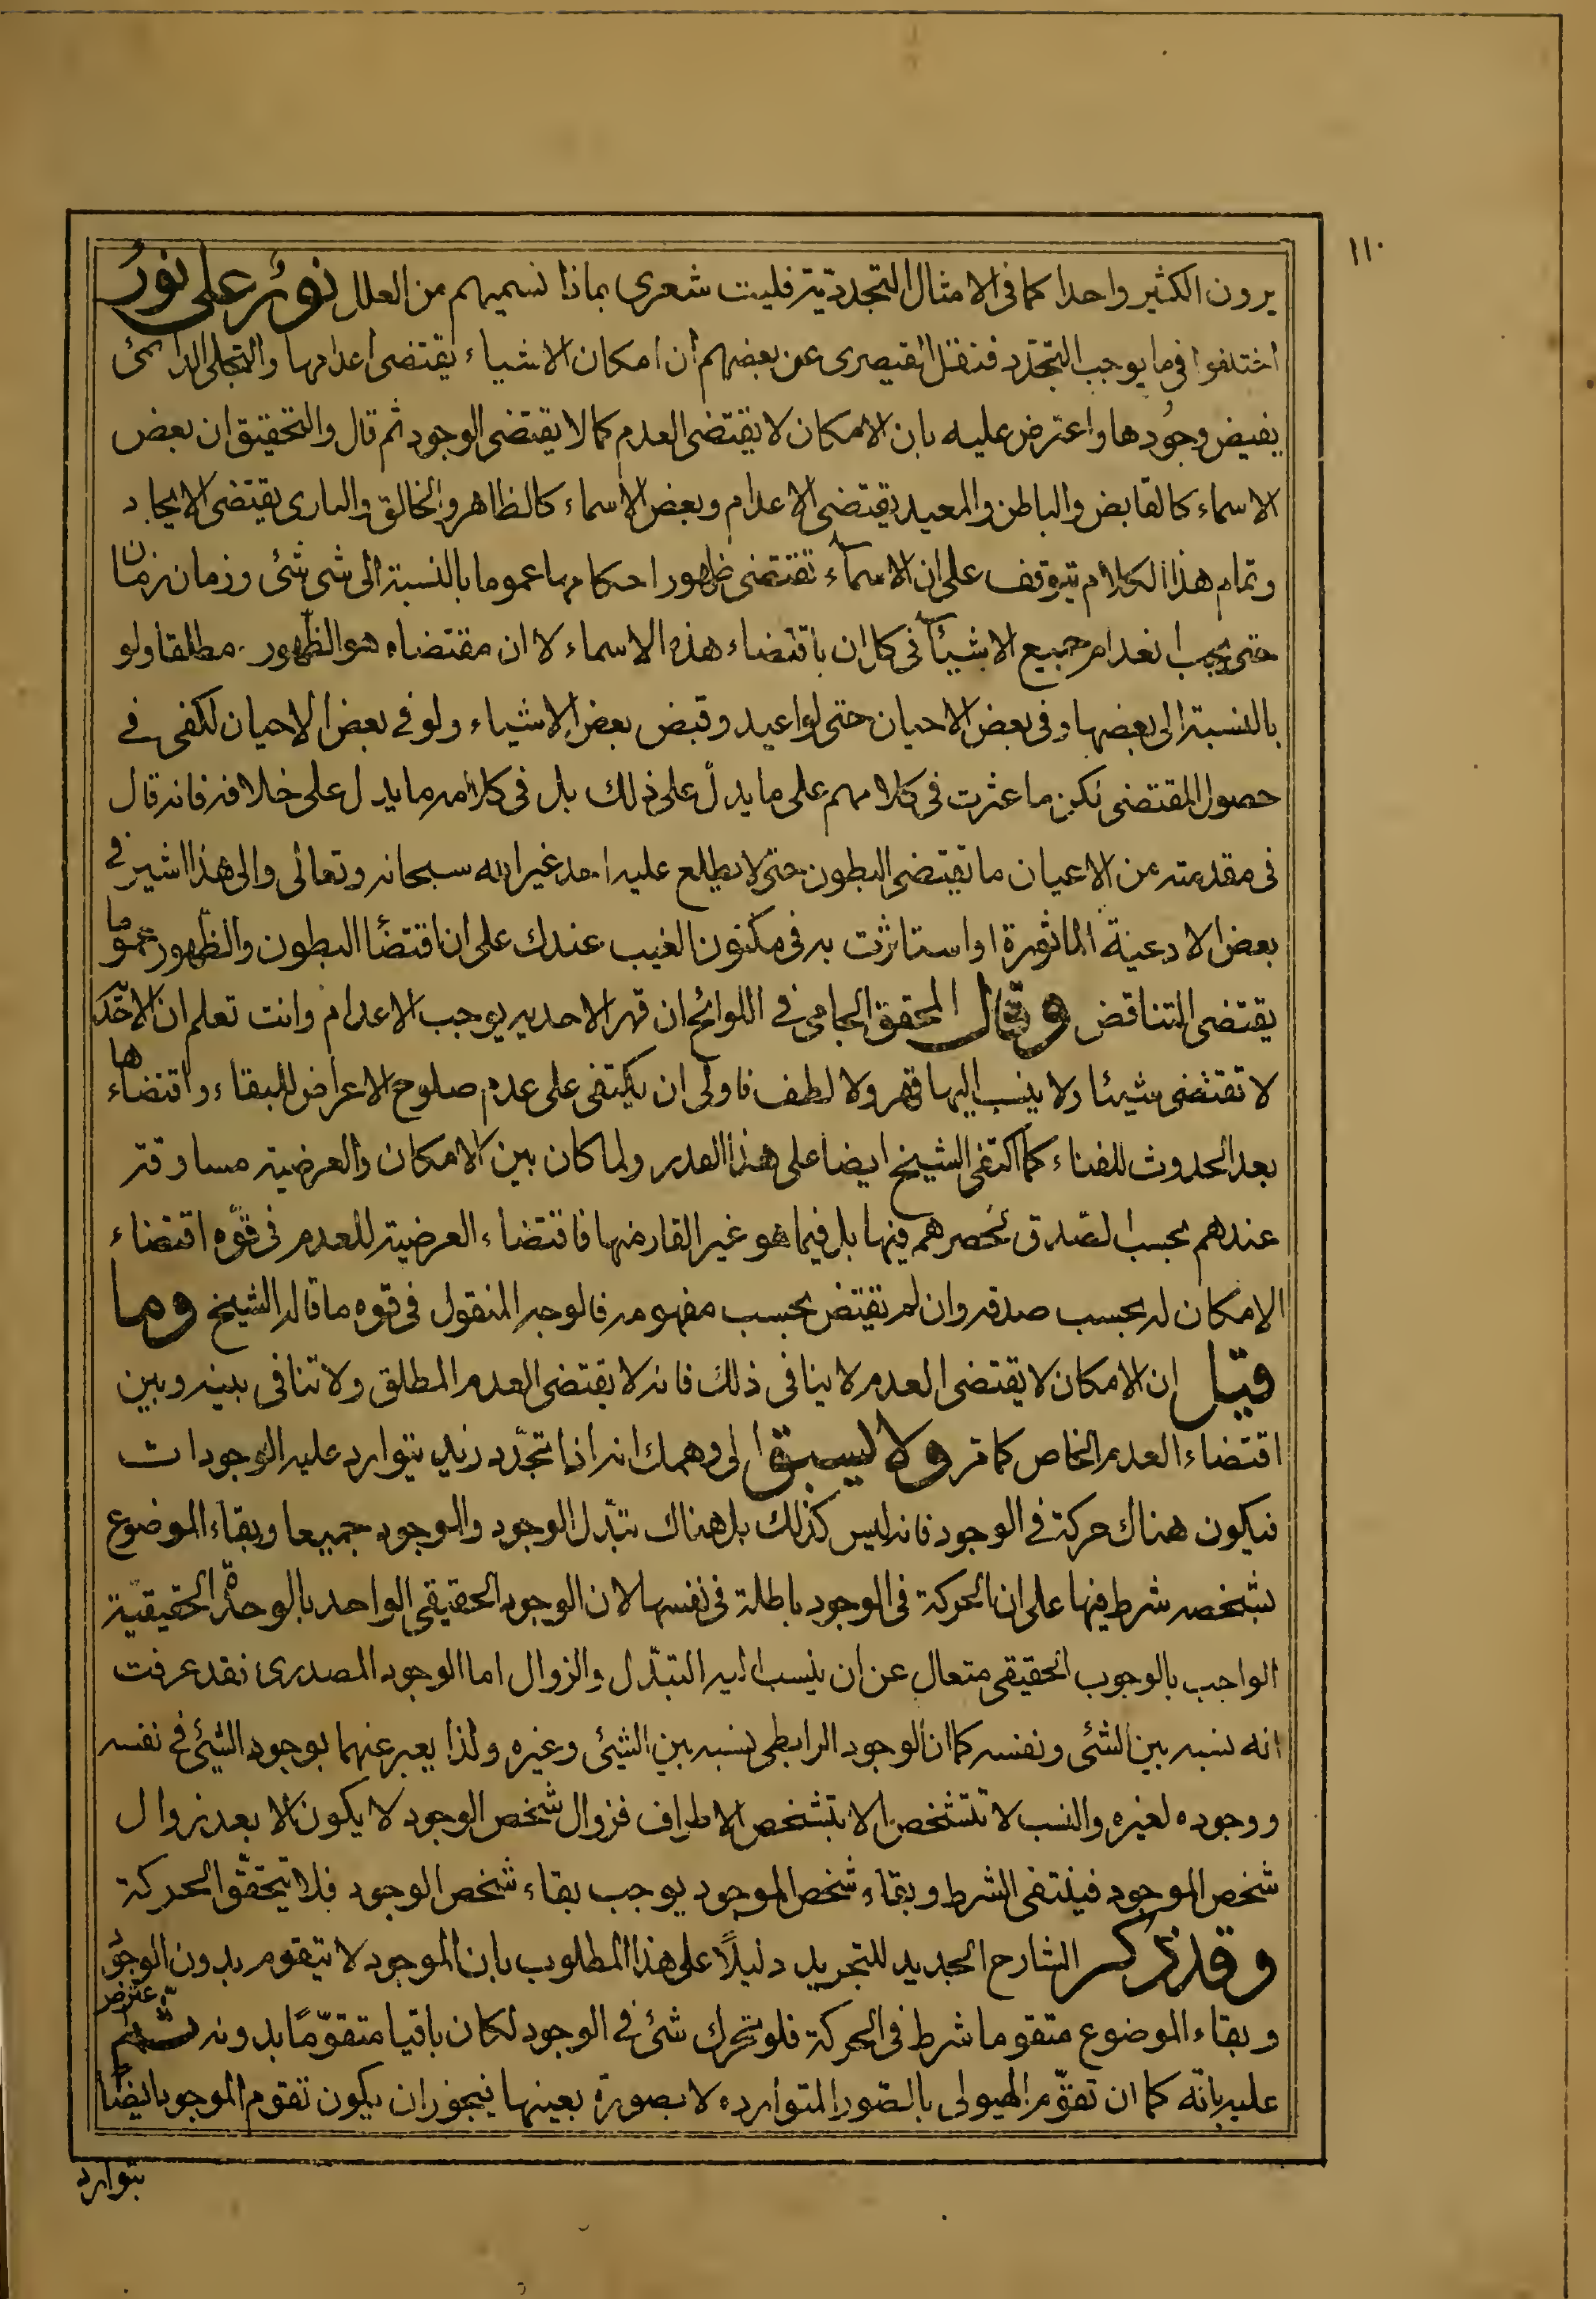 ١١٠
يرون الكثير واحدا كما فى الامثال التجددية فليت شعرى بماذا نسميهم من العلل نور على نور
اختلفوا فى ما يوجب التجدد فنقل القيصرى عن بعضهم ان امكان الاشياء يقتضى اعدامها والتجلى الدائمى
يفيض وجودها واعترض عليه بان الامكان لا يقتضى العدم كما لا يقتضى الوجود ثم قال والتحقيق ان بعض
الاسماء كالقابض والباطن والمعيد يقتضى الاعدام وبعض الاسماء كالظاهر والخالق والبارى يقتضى الايجاد
وتمام هذا الكلام يتوقف على ان الاسماء تقتضى ظهور احكامها عموما بالنسبة الى شى شئ وزمان زمان
حتى يجب انعدام جميع الاشياء فى كل ان باقتضاء هذه الاسماء لا ان مقتضاه هو الظهور مطلقا ولو
بالنسبة الى بعضها وفى بعض الاحيان حتى لو اعيد وقبض بعض الاشياء ولو فى بعض الاحيان لكفى فى
حصول المقتضى لكن ما عثرت فى كلامهم على ما يدل على ذلك بل فى كلامه ما يدل على خلافه فانه قال
فى مقدمته من الاعيان ما تقتضى البطون حتى لا يطلع عليه احد غير الله سبحانه وتعالى والى هذا اشير فى
بعض الادعية الماثورة او استاثرت به فى مكنون الغيب عندك على ان اقتضاء البطون والظهور عموما
يقتضى التناقض وقال المحقق الجامى فى اللوائح ان قهر الاحديه يوجب الاعدام وانت تعلم ان الاحدية
لا تقتضى شيئا ولا ينسب اليها قهر ولا لطف فاولى ان يكتفى على عدم صلوح الاعراض للبقاء واقتضاءها
بعد الحدوث للفناء كما اكتفى الشيخ ايضا على هذا القدر ولما كان بين الامكان والعرضية مساوقة
عندهم بحسب الصدق لحصرهم فيها بل فيما هو غير القار منها فاقتضاء العرضية للعدم فى قوه اقتضاء
الامكان له بحسب صدقه وان لم يقتض بحسب مفهومه فالوجه المنقول فى قوه ما قاله الشيخ وما
قيل ان الامكان لا يقتضى العدم لا ينافى ذلك فانه لا يقتضى العدم المطلق ولا تنافى بينه وبين
اقتضاء العدم الخاص كما مر ولا ليسبق الى وهمك انه اذا تجدد زيد يتوارد عليه الوجودات
فيكون هناك حركة فى الوجود فانه ليس كذلك بل هناك تبدل الوجود والموجود جميعا وبقاء الموضوع
بشخصه شرط فيها على ان الحركة فى الوجود باطلة فى نفسها لان الوجود الحقيقى الواحد بالوحدة الحقيقية
الواجب بالوجوب الحقيقى متعال عن ان ينسب اليه التبدل والزوال اما الوجود المصدرى فقد عرفت
انه نسبه بين الشئ ونفسه كما ان الوجود الرابطى نسبه بين الشئ وغيره ولذا يعبر عنهما بوجود الشئ فى نفسه
ووجوده لغيره والنسب لا تتشخص الا بتشخص الاطراف فزوال شخص الوجود لا يكون الا بعد زوال
شخص الموجود فينتفى الشرط وبقاء شخص الموجود يوجب بقاء شخص الوجود فلا يتحقق الحركة
وقد ذكر الشارح الجديد للتجريد دليلًا على هذا المطلوب بان الموجود لا يتقوم بدون الوجود
وبقاء الموضوع متقوما شرط فى الحركة فلو تحرك شئ فى الوجود لكان باقيا متقومًا بدونه ثم اعترض
عليه بانّه كما ان تقوّم الهيولى بالصور المتوارده لا بصورة بعينها فيجوز ان يكون تقوم الموجود ايضًا
بتوارد